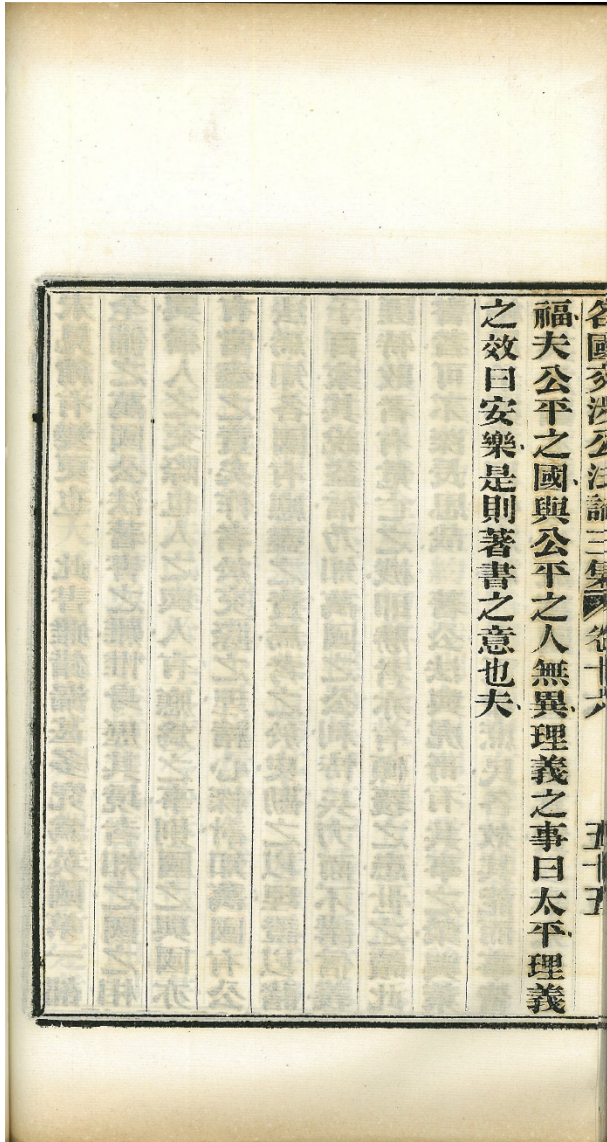 各國交涉公法論三集 卷十六 五十五
福夫公平之國與公平之人無異理義之事曰太平理義
之效曰安樂是則著書之意也夫